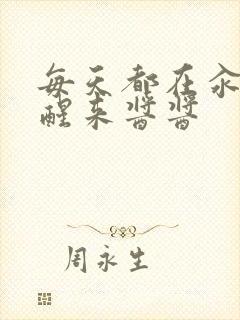 每天都在汆
醒来酱酱
周永生